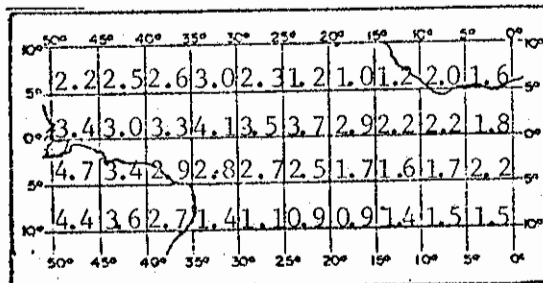 50° 45° 40° 35° 30° 25° 20° 15° 10° 5° 0°
10° 10°
2.2 2.5 2.6 3.0 2.3 1.2 1.0 1.2 2.0 1.6
5° 5°
3.4 3.0 3.3 4.1 3.5 3.7 2.9 2.2 2.2 1.8
0° 0°
4.7 3.4 2.9 2.8 2.7 2.5 1.7 1.6 1.7 2.2
5° 5°
4.4 3.6 2.7 1.4 1.1 0.9 0.9 1.4 1.5 1.5
10° 10°
50° 45° 40° 35° 30° 25° 20° 15° 10° 5° 0°